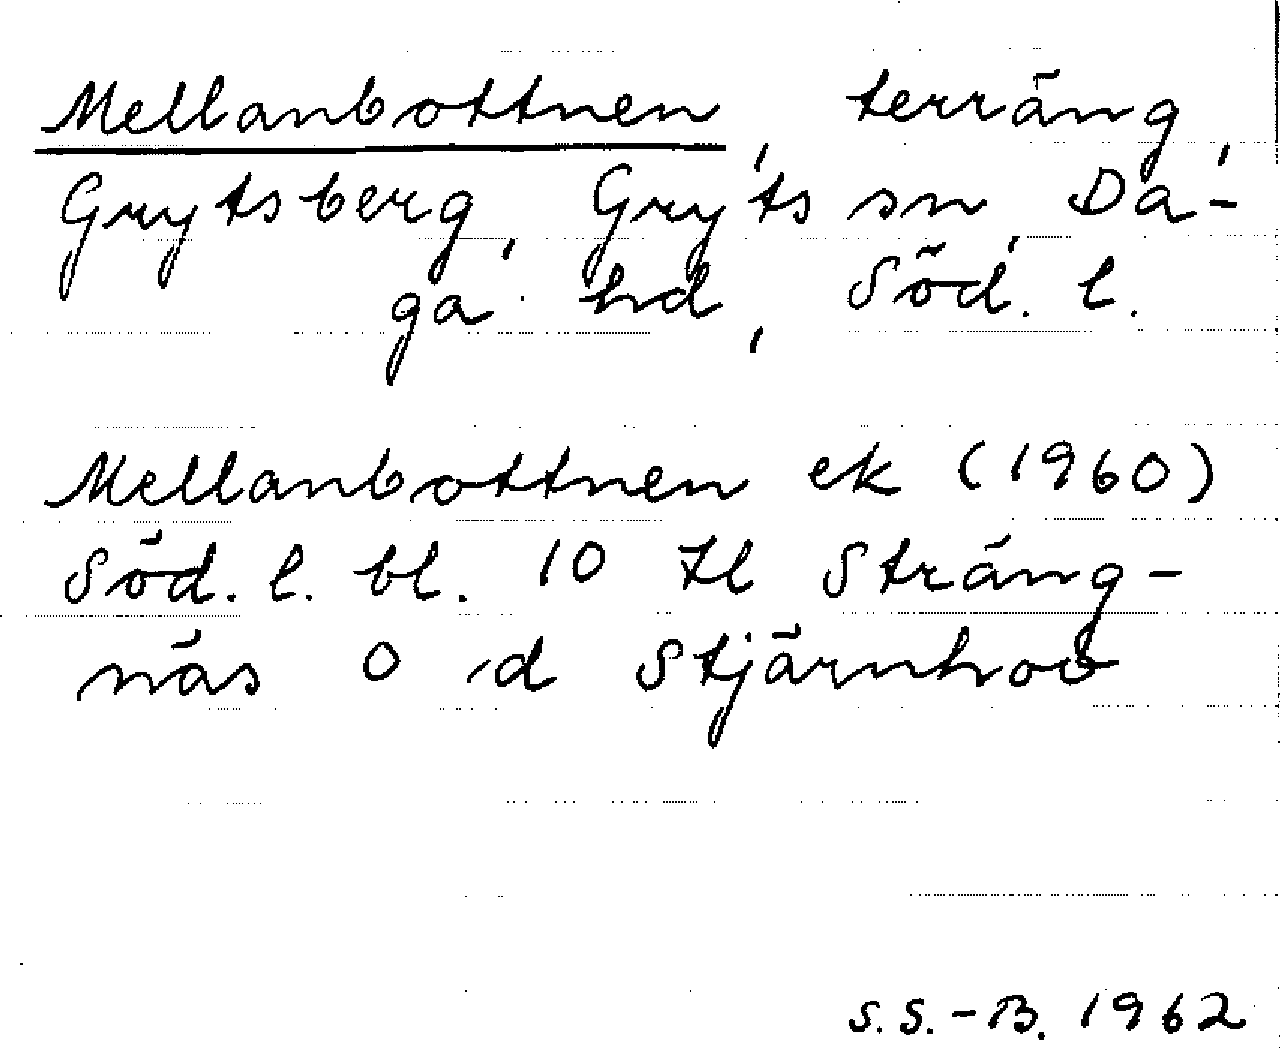 Mellanbottnen, terräng,
Grytsberg, Gryts sn, Da-
ga hd, Söd. l.
Mellanbottnen ek (1960)
Söd. l. bl. 10 tl Sträng-
näs O d Stjärnhov
S.S.-B. 1962